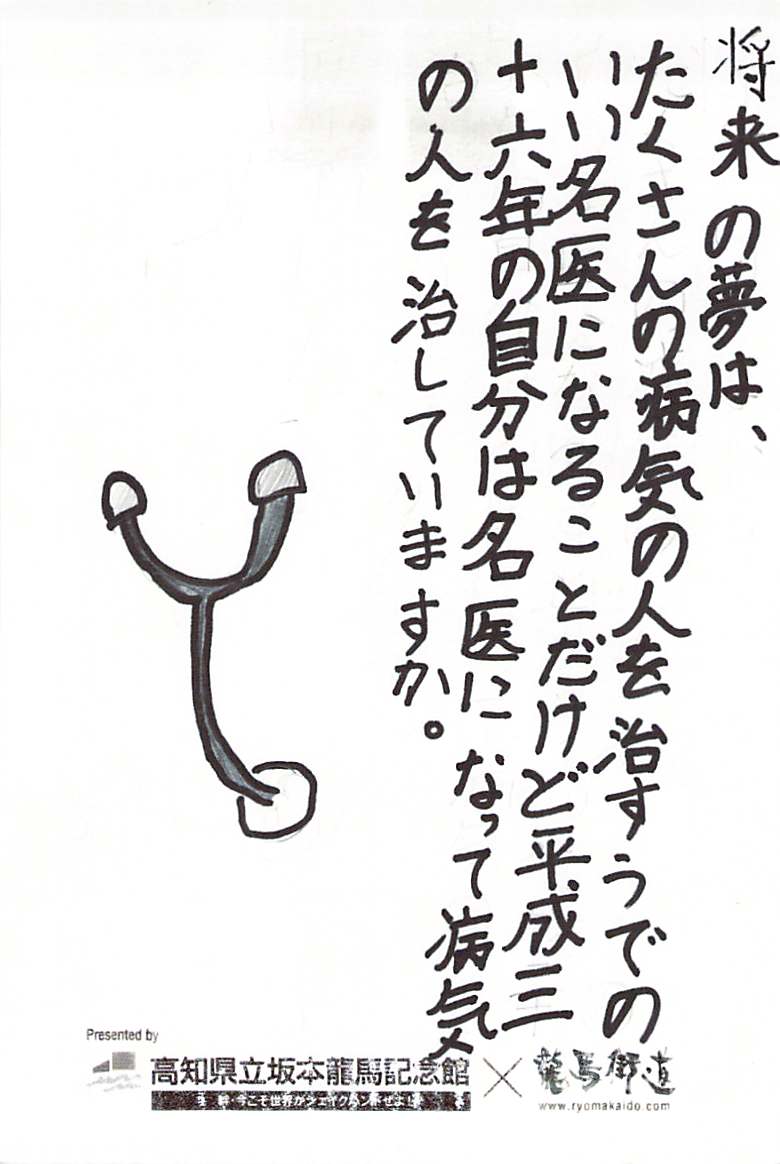 将来の夢は、
たくさんの病気の人を治すうでの
いい名医になることだけど平成三
十六年の自分は名医になって病気
の人を治していますか。
Presented by
高知県立坂本龍馬記念館
×
龍馬街道
www.ryomakaido.com